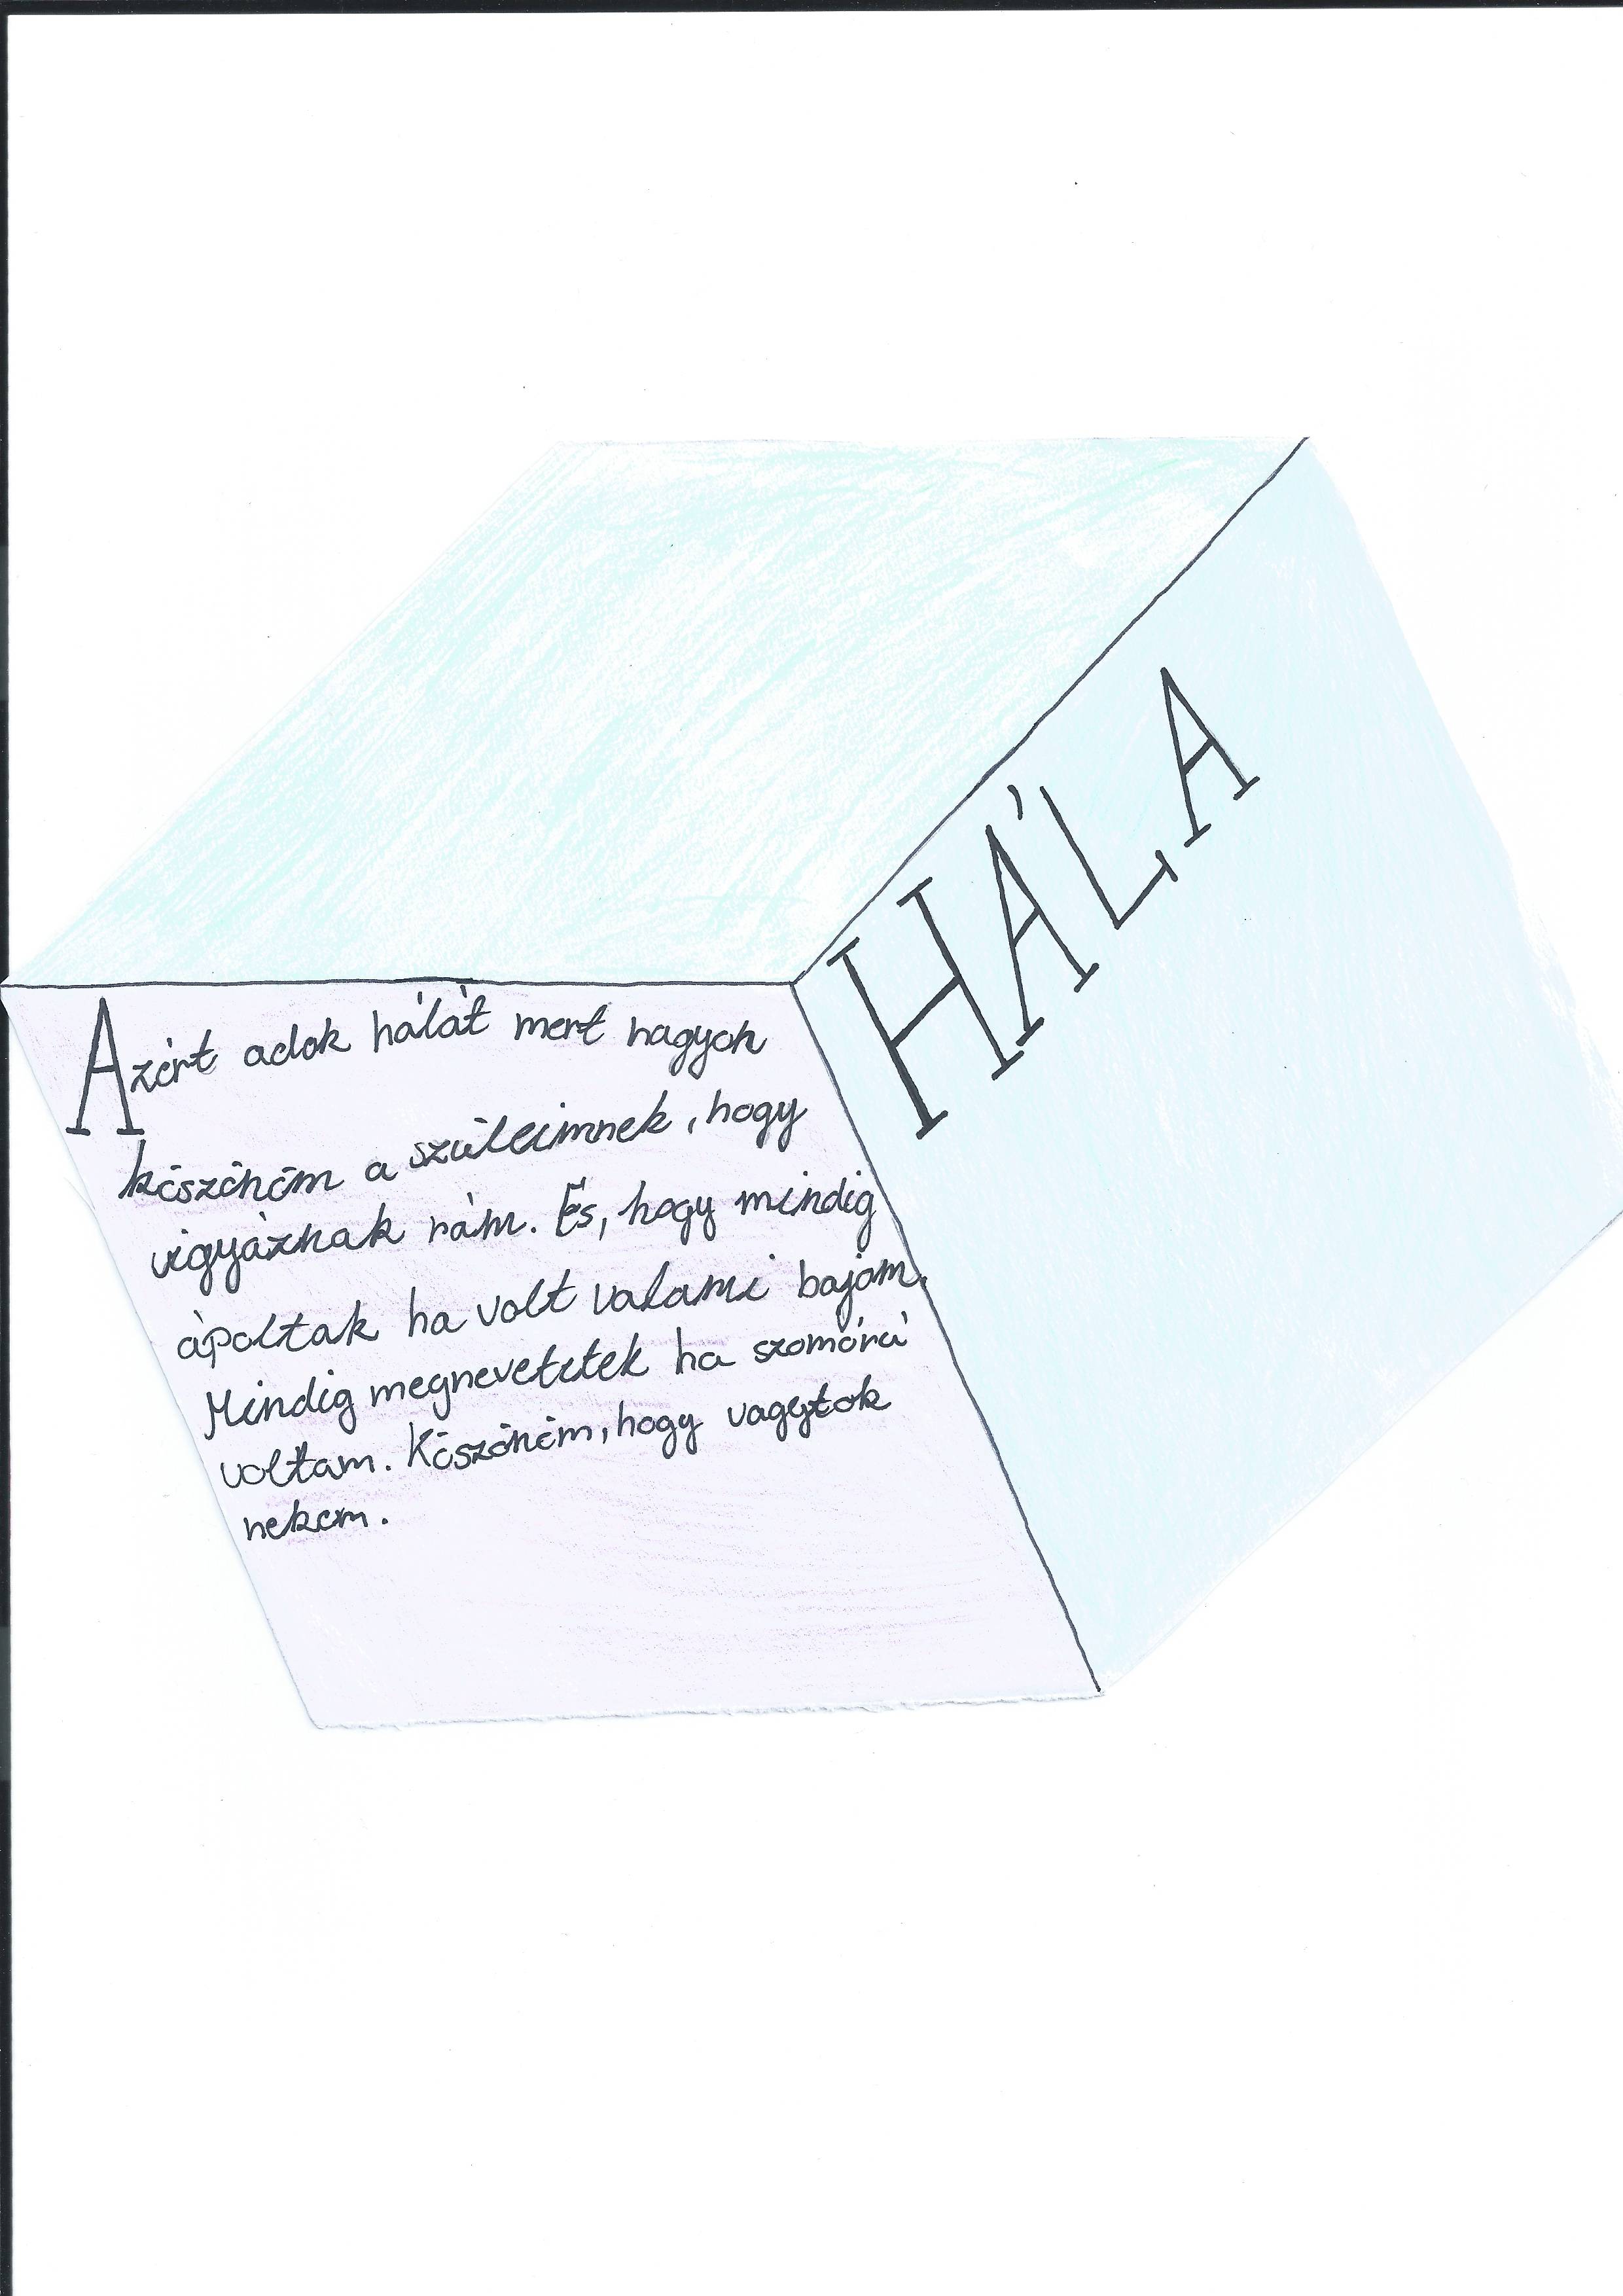 HÁLA
Azért adok hálát mert nagyon
köszönöm a szüleimnek, hogy
vigyáznak rám. És, hogy mindig
ápoltak ha volt valami bajom.
Mindig megnevetetek ha szomorú
voltam. Köszönöm, hogy vagytok
nekem.